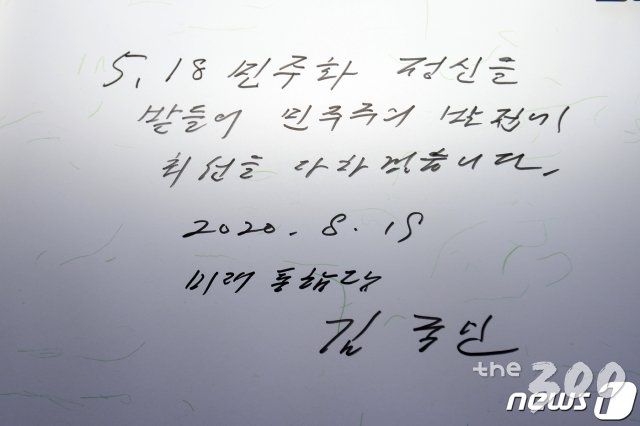 5.18 민주화 정신을
받들어 민주주의 발전에
최선을 다하겠습니다.
2020. 8. 19
미래 통합당
김 종인
the 300
news1